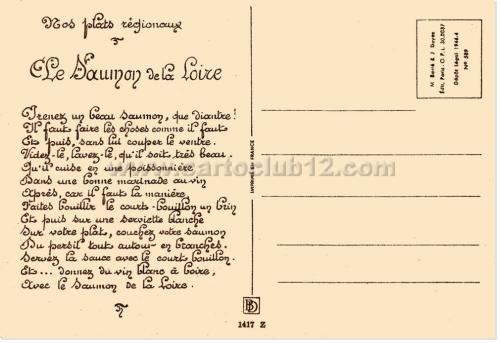 Nos plats régionaux
Le Saumon de la Loire
Prenez un beau saumon, que diantre !
Il faut faire les choses comme il faut
Et puis, sans lui couper le ventre.
Videz-le, lavez-le, qu'il soit très beau.
Qu'il cuise en une poissonnière
Dans une bonne marinade au vin
Après, car il faut la manière,
Faites bouillir le court-bouillon un brin
Et puis sur une serviette blanche
Sur votre plat, couchez votre saumon
Du persil tout autour en branches.
Servez la sauce avec le court bouillon.
Et... donnez du vin blanc à boire,
Avec le Saumon de la Loire.
www.cartoclub12.com
IMPRIMÉ EN FRANCE
BD
1417 Z
M. Barré & J. Dayez
Édit. Paris - O.P.L. 30.0037
Dépôt légal 1946-4
N° 589